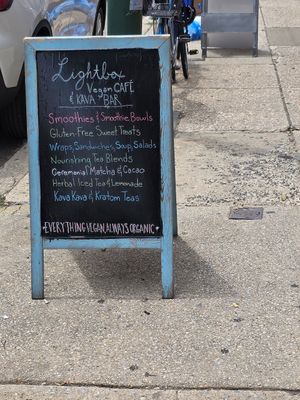 Lightbox
Vegan CAFÉ
& KAVA BAR
Smoothies & Smoothie Bowls
Gluten-Free Sweet Treats
Wraps, Sandwiches, Soup, Salads
Nourishing Tea Blends
Ceremonial Matcha & Cacao
Herbal Iced Tea & Lemonade
Kava Kava & Kratom Teas
EVERYTHING VEGAN, ALWAYS ORGANIC